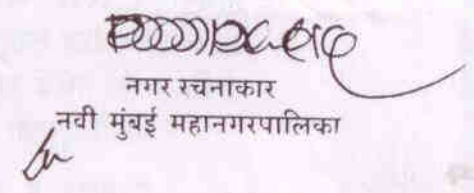 नगर रचनाकार
नवी मुंबई महानगरपालिका